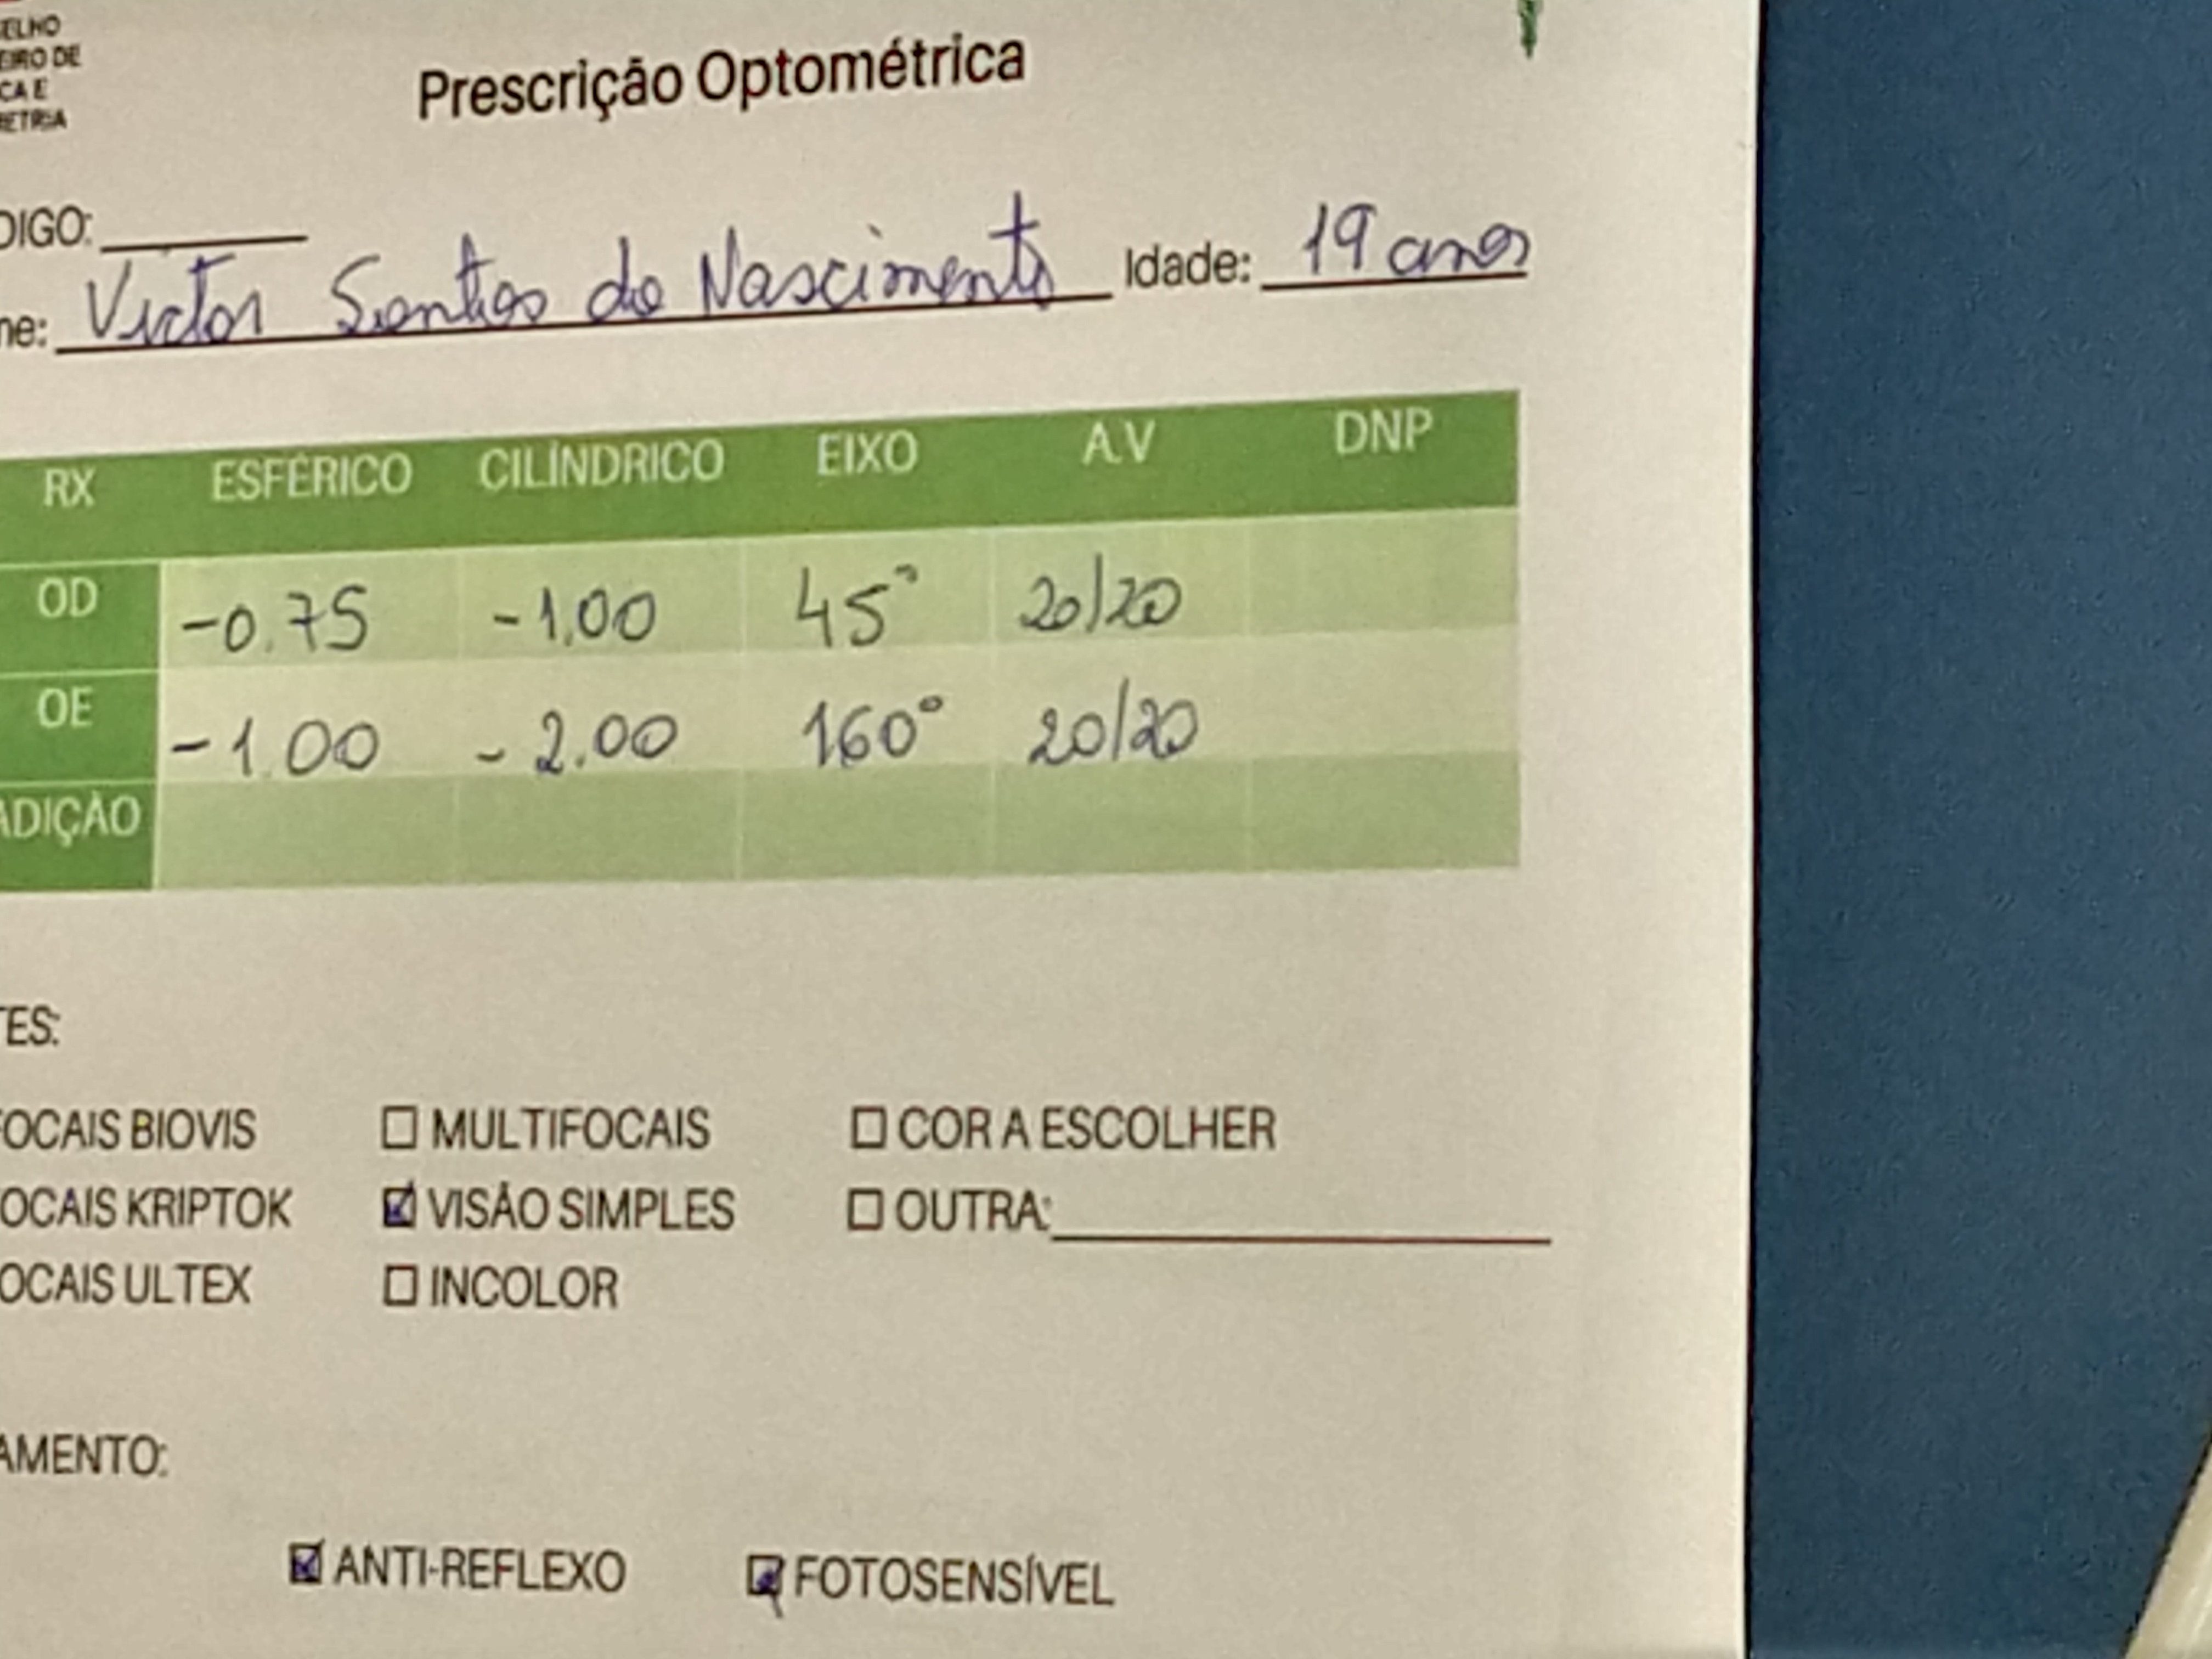 ELHO
EIRO DE
CA E
ETRIA
Prescrição Optométrica
DIGO:
me: Victor Santigo do Nascimento Idade: 19 anos
RX ESFÉRICO CILÍNDRICO EIXO A.V DNP
OD -0.75 -1.00 45° 20/20
OE -1.00 -2.00 160° 20/20
ADIÇÃO
TES:
FOCAIS BIOVIS ☐ MULTIFOCAIS ☐ COR A ESCOLHER
OCAIS KRIPTOK ☑ VISÃO SIMPLES ☐ OUTRA:
OCAIS ULTEX ☐ INCOLOR
AMENTO:
☑ ANTI-REFLEXO ☑ FOTOSENSÍVEL